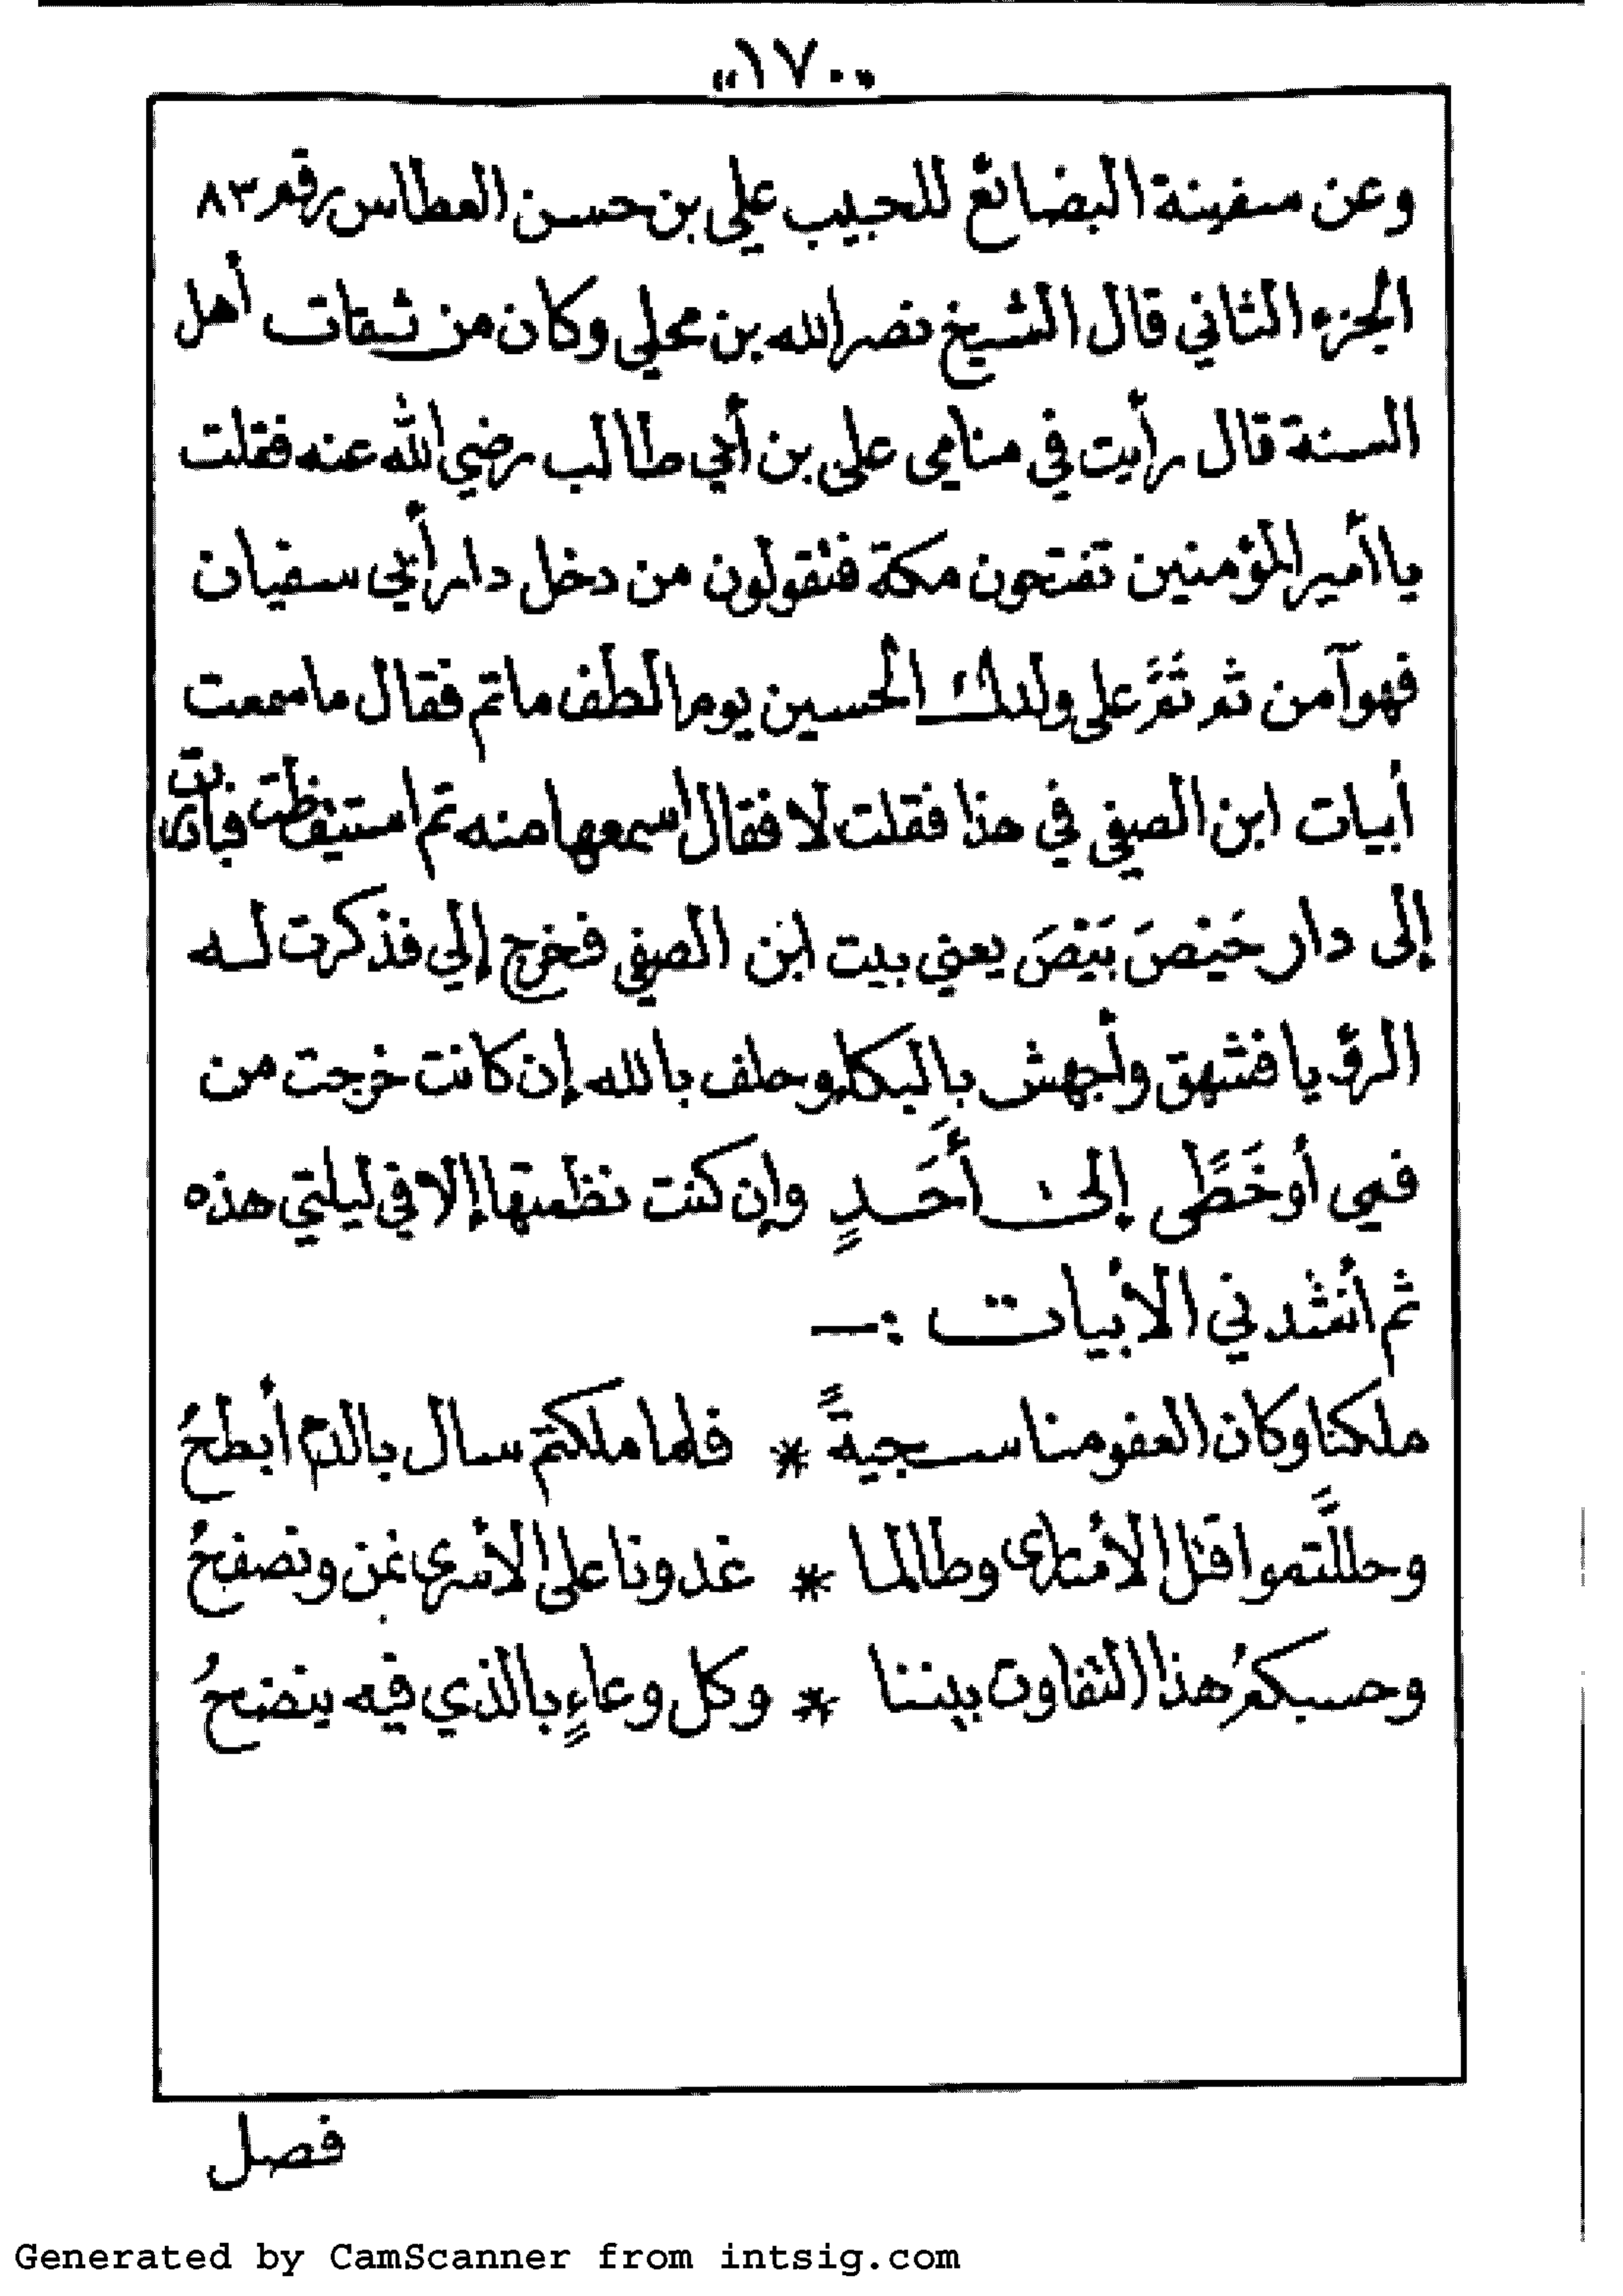 «١٧٠»
وعن سفينة البضائع للحبيب علي بن حسن العطاس رقم ٨٣
الجزء الثاني قال الشيخ نصر الله بن محلي وكان من ثقات أهل
السنة قال رأيت في منامي علي بن أبي طالب رضي الله عنه فقلت
يا أمير المؤمنين تفتحون مكة فتقولون من دخل دار أبي سفيان
فهو آمن ثم تَمَّ على ولدك الحسين يوم الطف ما تم فقال ما سمعت
أبيات ابن الصيفي في هذا فقلت لا فقال اسمعها منه ثم استيقظت فبادرت
إلى دار حَيْصَ بَيْصَ يعني بيت ابْن الصيفي فخرج إلي فذكرت له
الرؤيا فشهق وأجهش بالبكاء وحلف بالله إن كانت خرجت من
فمي أو خَطِّى إلى أَحَدٍ وإن كنت نظمتها إلا في ليلتي هذه
ثم أنشدني الأبيات :ــ
ملكنا وكان العفو منا سجيةً * فلما ملكتم سال بالدم أبطحُ
وحللّتموا قتل الأسارى وطالما * غدونا على الأسرى نمن ونصفحُ
وحسبكمُ هذا التفاوت بيننا * وكل وعاءٍ بالذي فيه ينضحُ
فصل
Generated by CamScanner from intsig.com